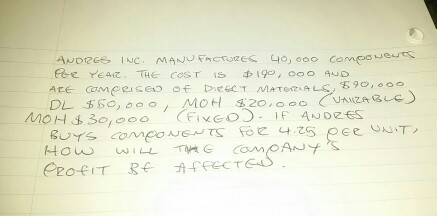 ANDRES INC. MANUFACTURES 40,000 COMPONENTS
PER YEAR. THE COST IS $190,000 AND
ARE COMPRISED OF DIRECT MATERIALS, $90,000
DL $50,000, MOH $20,000 (VARIABLE)
MOH $30,000 (FIXED). IF ANDRES
BUYS COMPONENTS FOR 4.25 PER UNIT,
HOW WILL THE COMPANY'S
PROFIT BE AFFECTED.